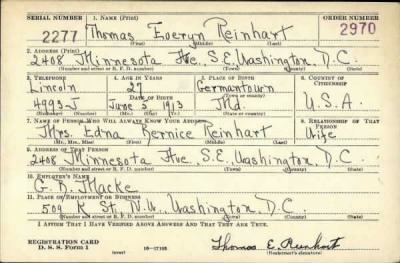 SERIAL NUMBER 1. NAME (Print) ORDER NUMBER
2277 Thomas Everyn Reinhart 2970
(First) (Middle) (Last)
2. ADDRESS (Print)
2408 Minnesota Ave., S.E., Washington, D.C.
(Number and street or R. F. D. number) (Town) (County) (State)
3. TELEPHONE 4. AGE IN YEARS 5. PLACE OF BIRTH 6. COUNTRY OF CITIZENSHIP
Lincoln 27 Germantown
DATE OF BIRTH (Town or county)
4993-J June 3 1913 Md. U.S.A.
(Exchange) (Number) (Mo.) (Day) (Yr.) (State or country)
7. NAME OF PERSON WHO WILL ALWAYS KNOW YOUR ADDRESS 8. RELATIONSHIP OF THAT PERSON
Mrs. Edna Bernice Reinhart Wife
(Mr., Mrs., Miss) (First) (Middle) (Last)
9. ADDRESS OF THAT PERSON
2408 Minnesota Ave., S.E., Washington, D.C.
(Number and street or R. F. D. number) (Town) (County) (State)
10. EMPLOYER'S NAME
G. B. Macke
11. PLACE OF EMPLOYMENT OR BUSINESS
509 K St., N.W., Washington, D.C.
(Number and street or R. F. D. number) (Town) (County) (State)
I AFFIRM THAT I HAVE VERIFIED ABOVE ANSWERS AND THAT THEY ARE TRUE.
REGISTRATION CARD
D. S. S. Form 1 (over) 16-17105 Thomas E. Reinhart
(Registrant's signature)